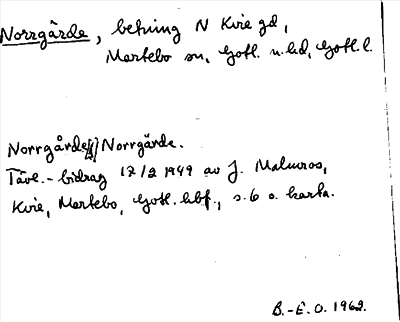 Norrgärde, betning N Kvie gd,
Martebo sn, Gotl. n. hd, Gotl. l.
Norrgårde[ɔ:] Norrgärde.
Tävl.-bidrag 12/2 1949 av J. Malmros,
Kvie, Martebo, Gotl. hbf., s. 6 o. karta.
B.-E. O. 1962.